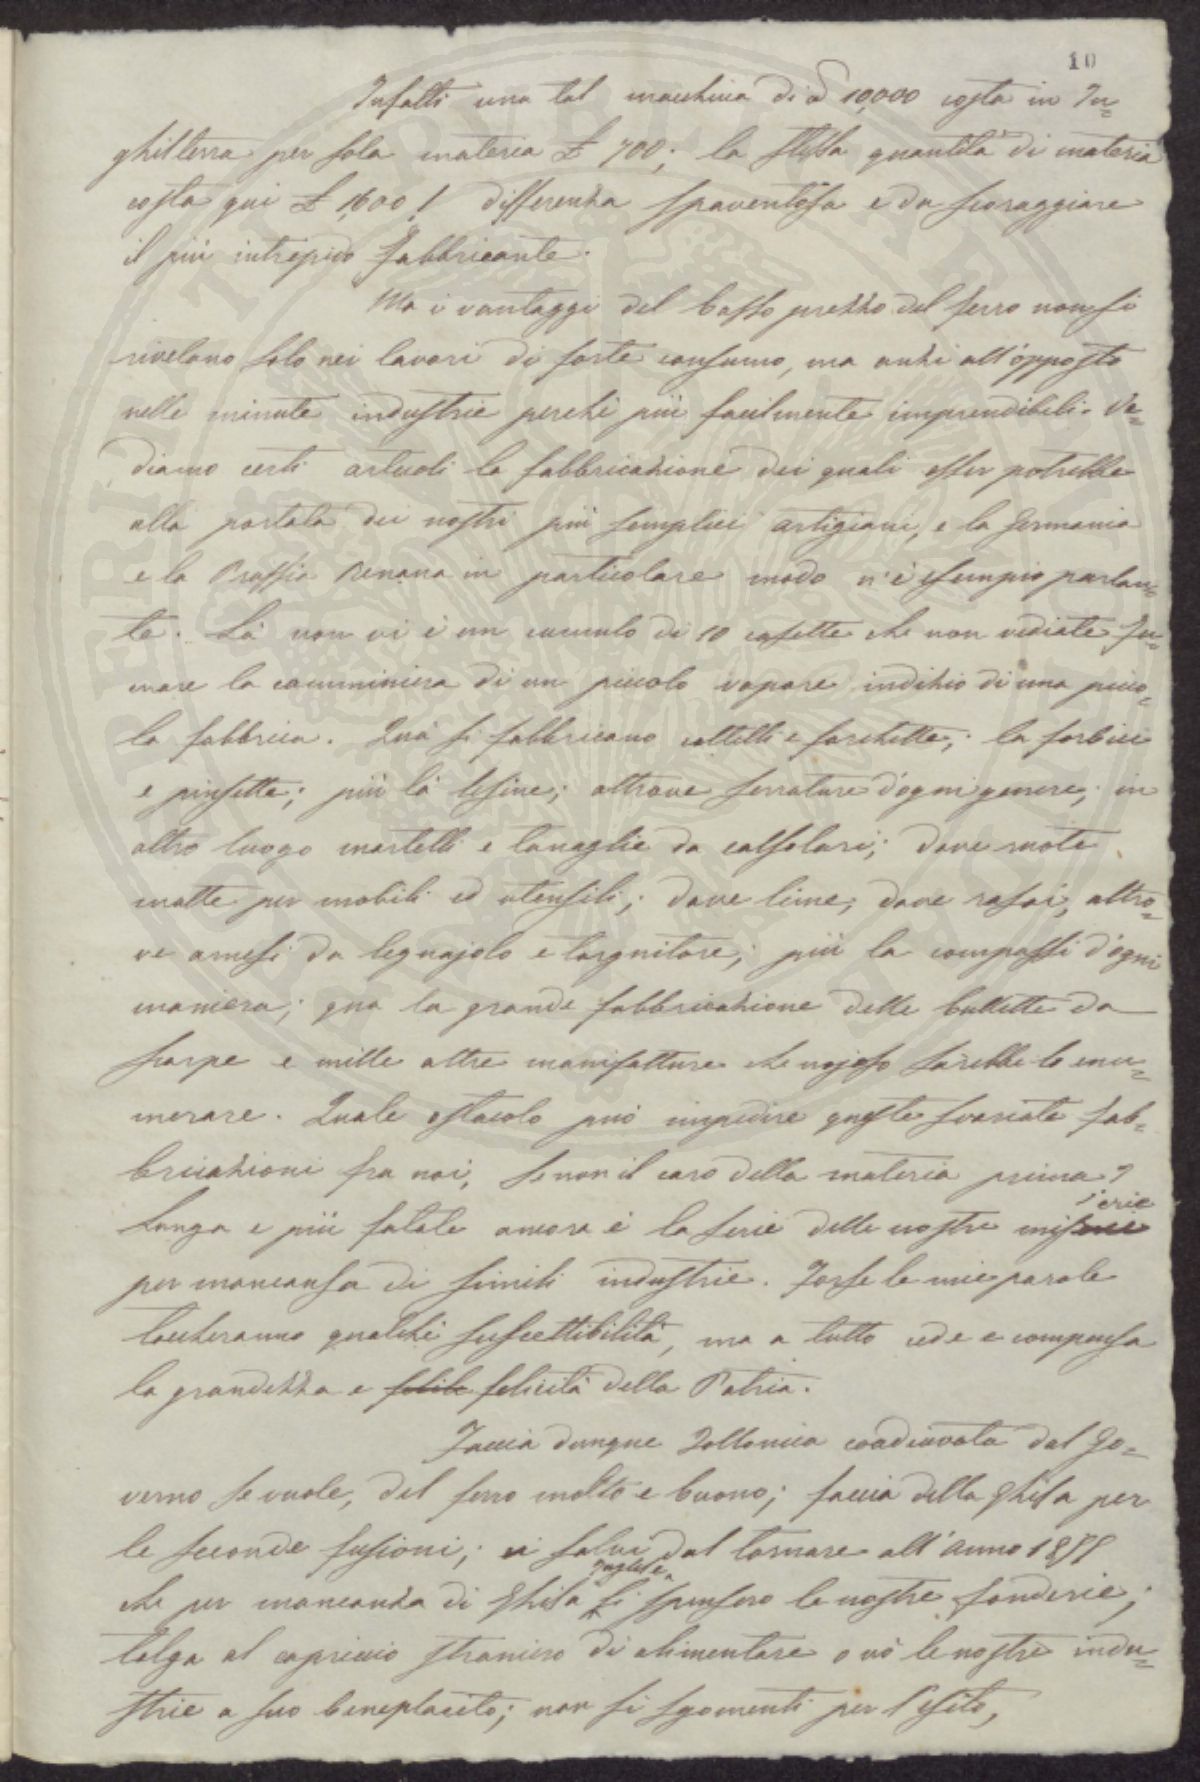 10
Infatti una tal macchina di ₶ 10,000 costa in In=
ghilterra per sola materia £ 700; la stessa quantità di materia
costa qui £ 1,600! differenza spaventosa e da scoraggiare
il più intrepido fabbricante.
Ma i vantaggi del basso prezzo del ferro non si
rivelano solo nei lavori di forte consumo, ma anzi all'opposto
nelle minute industrie perchè più facilmente imprendibili. Ve=
diamo certi articoli la fabbricazione dei quali esser potrebbe
alla portata dei nostri più semplici artigiani, e la Germania
e la Prussia Renana in particolare modo n'è esempio parlan=
te. Là non vi è un cumulo di 10 casette che non vediate fu=
mare la camminiera di un piccolo vapore indizio di una picco=
la fabbrica. Quà si fabbricano coltelli e forchette; là forbici
e pinsette; più là lesine; altrove serrature d'ogni genere; in
altro luogo martelli e tanaglie da calsolari; dove mote
matte per mobili ed utensili; dove lime, dove rasoi, altro=
ve arnesi da legnajolo e torgnitore; più la compassi d'ogni
maniera; qua la grande fabbricazione delle bullette da
scarpe e mille altre manifatture che nojoso sarebbe lo enu=
merare. Quale ostacolo può impedire queste svariate fab=
bricazioni fra noi, se non il caro della materia prima?
Lunga e più fatale ancora è la serie delle nostre miserie
per mancansa di simili industrie. Forse le mie parole
toccheranno qualche suscettibilità, ma a tutto cede e compensa
la grandezza e felicità della Patria.
Faccia dunque Follonica coadiuvata dal Go=
verno se vuole, del ferro molto e buono; faccia della ghisa per
le seconde fusioni; ci salvi dal tornare all'anno 1855
che per mancanza di Ghisa Inglese si spensero le nostre fonderie;
tolga al capriccio straniero di alimentare o nò le nostre indu=
strie a suo beneplacito; non si sgomenti per l'esito,